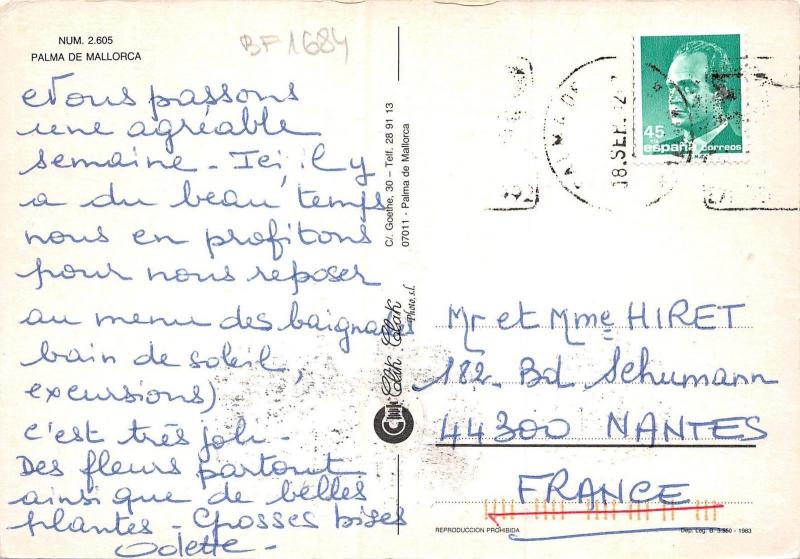 NUM. 2.605
PALMA DE MALLORCA
BF1684
Nous passons
une agréable
semaine - Ici, il y
a du beau temps
nous en profitons
pour nous reposer
au menu des baignades
bain de soleil,
excursions)
c'est très joli -
Des fleurs partout
ainsi que de belles
plantes - Grosses bises
Odette -
C/. Goethe, 30 – Telf. 28 91 13
07011 - Palma de Mallorca
Clak Clak
Photo, s.l.
45
PTA
españa correos
PALMA DE
18. SEP.
Mr et Mme HIRET
182 Bd Schumann
44300 NANTES
FRANCE
REPRODUCCION PROHIBIDA
Dep. Leg. B. 3.350 - 1983